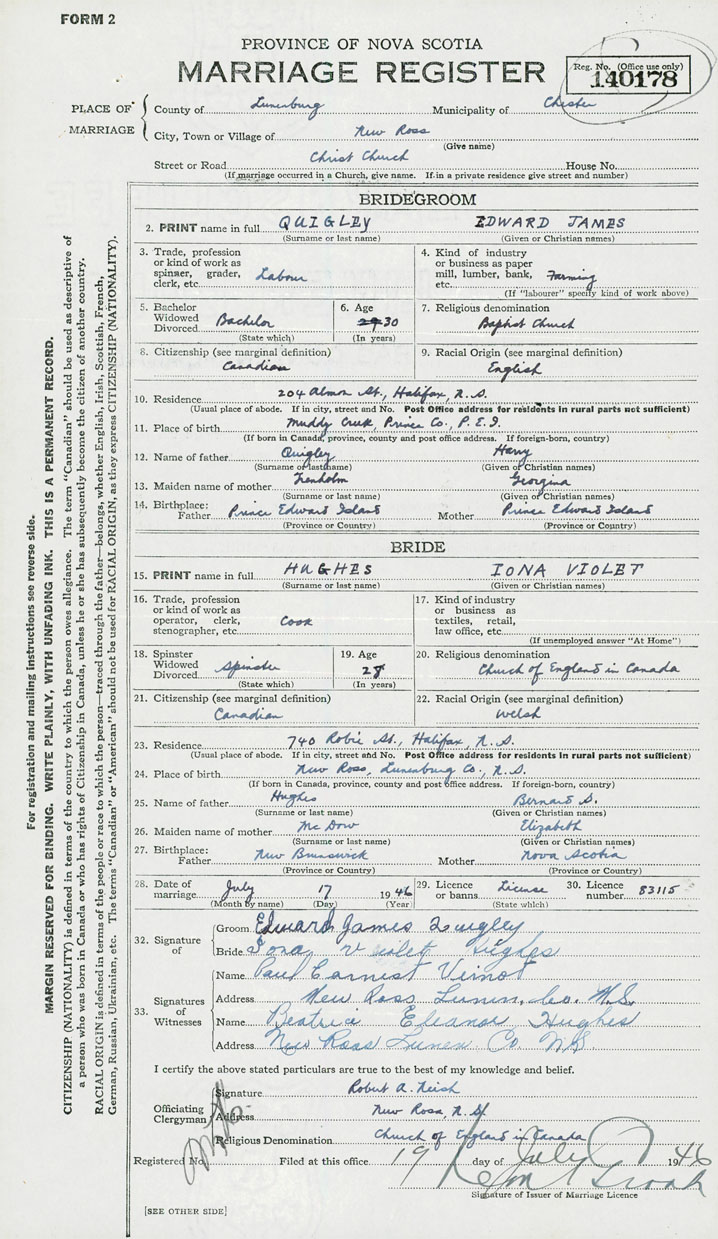 FORM 2
PROVINCE OF NOVA SCOTIA
MARRIAGE REGISTER
Reg. No. (Office use only)
140178
PLACE OF MARRIAGE
County of Lunenburg Municipality of Chester
City, Town or Village of New Ross
(Give name)
Street or Road Christ Church House No.
(If marriage occurred in a Church, give name. If in a private residence give street and number)
BRIDEGROOM
2. PRINT name in full QUIGLEY EDWARD JAMES
(Surname or last name) (Given or Christian names)
3. Trade, profession or kind of work as spinner, grader, clerk, etc. Labour
4. Kind of industry or business as paper mill, lumber, bank, etc. Farming
(If "labourer" specify kind of work above)
5. Bachelor Widowed Divorced Bachelor
(State which)
6. Age 29 30
(In years)
7. Religious denomination
Baptist Church
8. Citizenship (see marginal definition)
Canadian
9. Racial Origin (see marginal definition)
English
10. Residence 204 Almon St., Halifax, N.S.
(Usual place of abode. If in city, street and No. Post Office address for residents in rural parts not sufficient)
11. Place of birth Muddy Creek, Prince Co., P.E.I.
(If born in Canada, province, county and post office address. If foreign-born, country)
12. Name of father Quigley Harry
(Surname or last name) (Given or Christian names)
13. Maiden name of mother Trenholm Georgina
(Surname or last name) (Given or Christian names)
14. Birthplace: Father Prince Edward Island Mother Prince Edward Island
(Province or Country) (Province or Country)
BRIDE
15. PRINT name in full HUGHES IONA VIOLET
(Surname or last name) (Given or Christian names)
16. Trade, profession or kind of work as operator, clerk, stenographer, etc. Cook
17. Kind of industry or business as textiles, retail, law office, etc.
(If unemployed answer "At Home")
18. Spinster Widowed Divorced Spinster
(State which)
19. Age 28
(In years)
20. Religious denomination
Church of England in Canada
21. Citizenship (see marginal definition)
Canadian
22. Racial Origin (see marginal definition)
Welsh
23. Residence 740 Robie St., Halifax, N.S.
(Usual place of abode. If in city, street and No. Post Office address for residents in rural parts not sufficient)
24. Place of birth New Ross, Lunenburg Co., N.S.
(If born in Canada, province, county and post office address. If foreign-born, country)
25. Name of father Hughes Bernard S.
(Surname or last name) (Given or Christian names)
26. Maiden name of mother Mc Dow Elizabeth
(Surname or last name) (Given or Christian names)
27. Birthplace: Father New Brunswick Mother Nova Scotia
(Province or Country) (Province or Country)
28. Date of marriage July 17 1946
(Month by name) (Day) (Year)
29. Licence or banns License
(State which)
30. Licence number 83115
32. Signature of
Groom Edward James Quigley
Bride Iona Violet Hughes
33. Signatures of Witnesses
Name Paul Earnist Veinot
Address New Ross Lunen. Co. N.S.
Name Beatrice Eleanor Hughes
Address New Ross Lunen Co N.S
I certify the above stated particulars are true to the best of my knowledge and belief.
Officiating Clergyman
Signature Robert A. Neish
Address New Ross, N.S.
Religious Denomination Church of England in Canada
Registered No. Filed at this office 19 day of July 1946
Signature of Issuer of Marriage Licence
[SEE OTHER SIDE]
For registration and mailing instructions see reverse side.
MARGIN RESERVED FOR BINDING. WRITE PLAINLY, WITH UNFADING INK. THIS IS A PERMANENT RECORD.
CITIZENSHIP (NATIONALITY) is defined in terms of the country to which the person owes allegiance. The term "Canadian" should be used as descriptive of
a person who was born in Canada or who has rights of Citizenship in Canada, unless he or she has subsequently become the citizen of another country.
RACIAL ORIGIN is defined in terms of the people or race to which the person—traced through the father—belongs, whether English, Irish, Scottish, French,
German, Russian, Ukrainian, etc. The terms "Canadian" or "American" should not be used for RACIAL ORIGIN, as they express CITIZENSHIP (NATIONALITY).